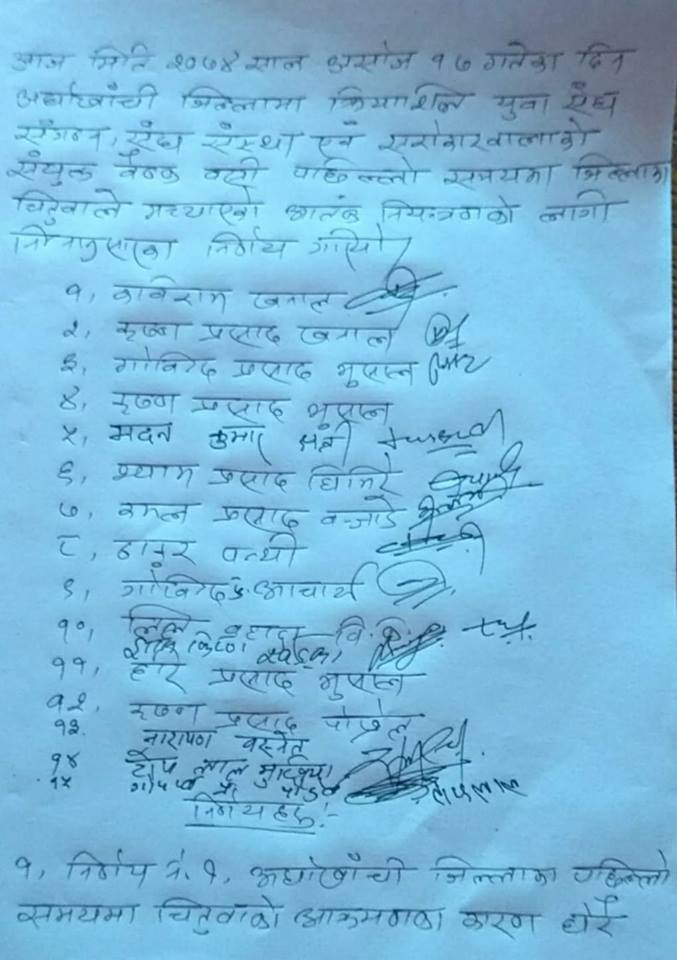 आज मिति २०७४ साल असोज १७ गतेका दिन
अर्घाखाँची जिल्लामा क्रियाशिल युवा संघ
संगठन, संघ संस्था एवं सरोकारवालाको
संयुक्त बैठक बसी पछिल्लो समयमा जिल्लामा
चितुवाले मच्चाएको आतंक नियन्त्रणको लागी
निम्नानुसारका निर्णय गरियो ।
१, कविराम खनाल
२, कृष्ण प्रसाद खनाल
३, गोविन्द प्रसाद भुसाल
४, कृष्ण प्रसाद भुसाल
५, मदन कुमार
६, श्याम प्रसाद घिमिरे
७, कमल प्रसाद बन्जाडे
८, ठाकुर पन्थी
९, गोविन्द प्र. आचार्य
१०, बहादुर वि.
११, हरि प्रसाद भुसाल
१२, कृष्ण प्रसाद पोख्रेल
१३. नारायण बस्नेत
१४ लाल
१५ प्र.
निर्णयहरु :-
१, निर्णय नं. १, अर्घाखाँची जिल्लामा पछिल्लो
समयमा चितुवाको आक्रमणका कारण धेरै